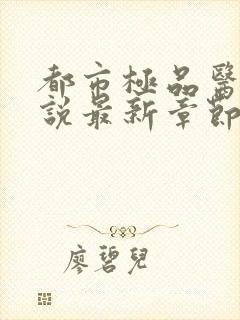 都市極品醫
說最新章節
廖碧兒